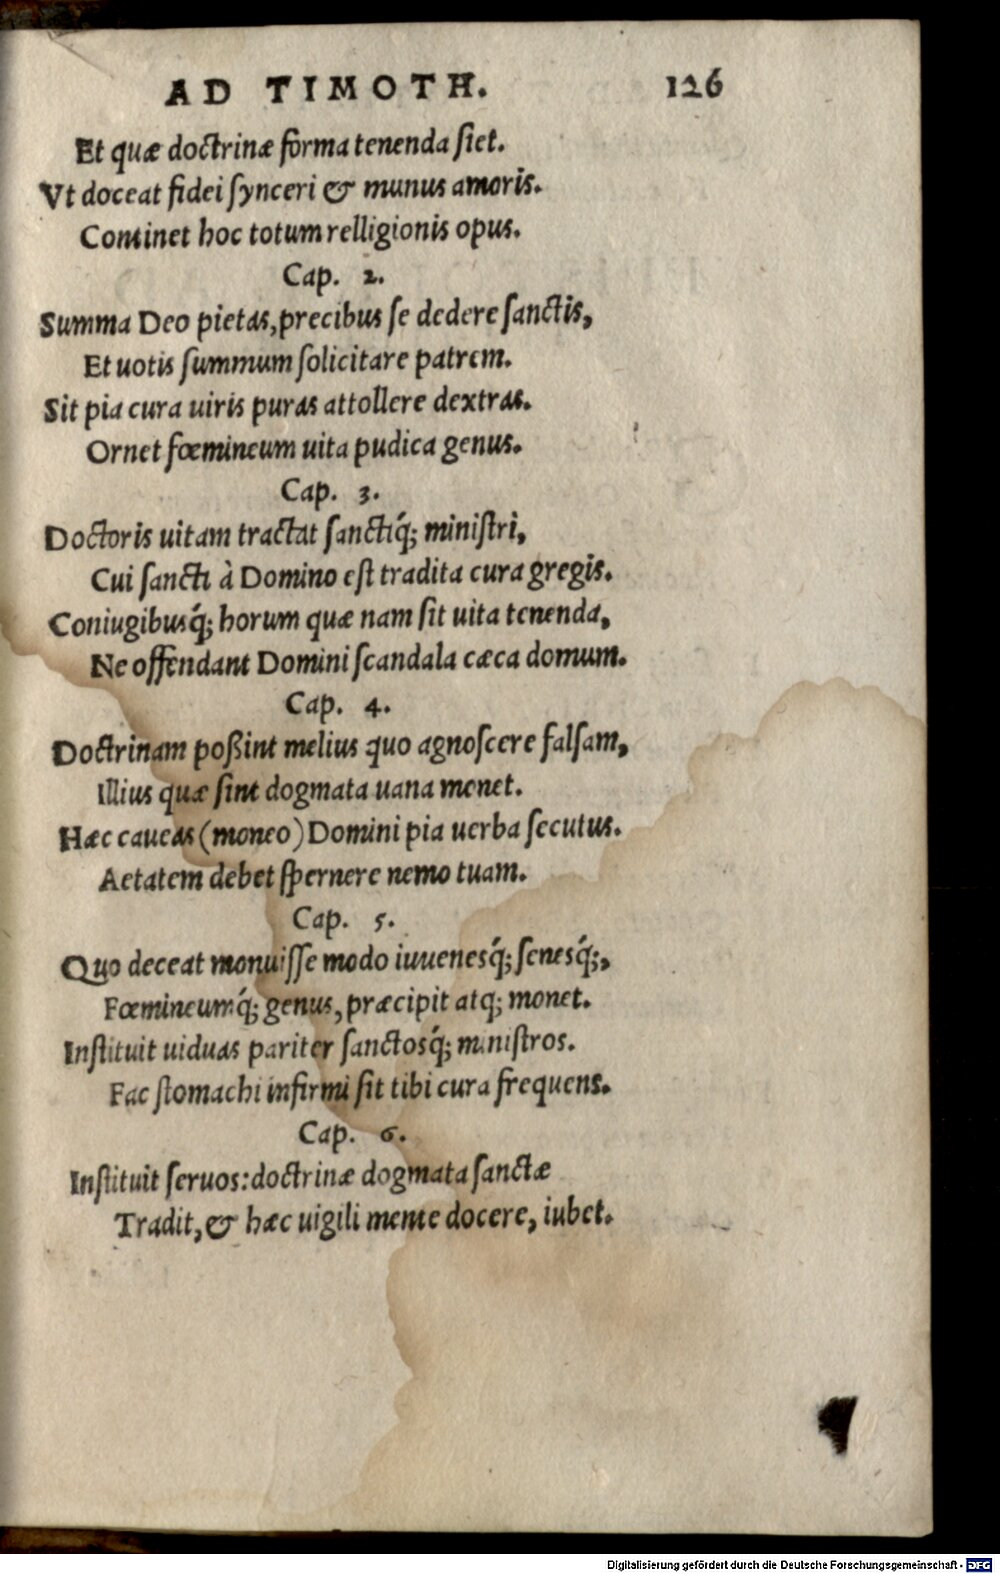 AD TIMOTH. 126
Et quæ doctrinæ forma tenenda ſiet.
Vt doceat fidei ſynceri & munus amoris.
Continet hoc totum relligionis opus.
Cap. 2.
Summa Deo pietas, precibus ſe dedere ſanctis,
Et uotis ſummum ſolicitare patrem.
Sit pia cura uiris puras attollere dextras.
Ornet fœmineum uita pudica genus.
Cap. 3.
Doctoris uitam tractat ſanctiq́; miniſtri,
Cui ſancti à Domino eſt tradita cura gregis.
Coniugibusq́; horum quæ nam ſit uita tenenda,
Ne offendant Domini ſcandala cæca domum.
Cap. 4.
Doctrinam poßint melius quo agnoſcere falſam,
Illius quæ ſint dogmata uana monet.
Hæc caueas (moneo) Domini pia uerba ſecutus.
Aetatem debet ſpernere nemo tuam.
Cap. 5.
Quo deceat monuiſſe modo iuuenesq́; ſenesq́;,
Fœmineumq́; genus, præcipit atq; monet.
Inſtituit uiduas pariter ſanctosq́; miniſtros.
Fac ſtomachi infirmi ſit tibi cura frequens.
Cap. 6.
Inſtituit ſeruos: doctrinæ dogmata ſanctæ
Tradit, & hæc uigili mente docere, iubet.
Digitalisierung gefördert durch die Deutsche Forschungsgemeinschaft - DFG